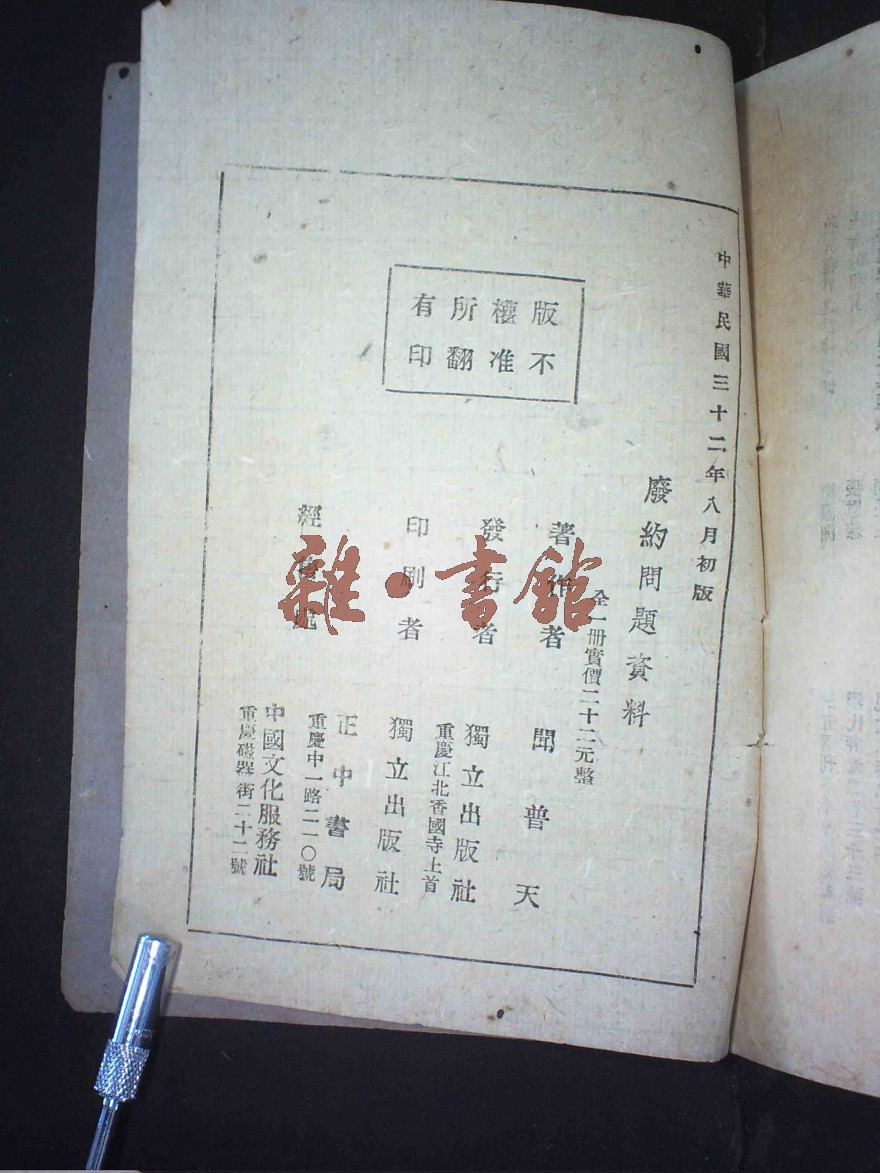 中華民國三十二年八月初版
廢約問題資料
全一冊實價二十二元整
著作者 聞普天
發行者 獨立出版社
重慶江北香國寺上首
印刷者 獨立出版社
經售處 正中書局
重慶中一路二一〇號
中國文化服務社
重慶磁器街二十二號
版權所有
不准翻印
雜·書館